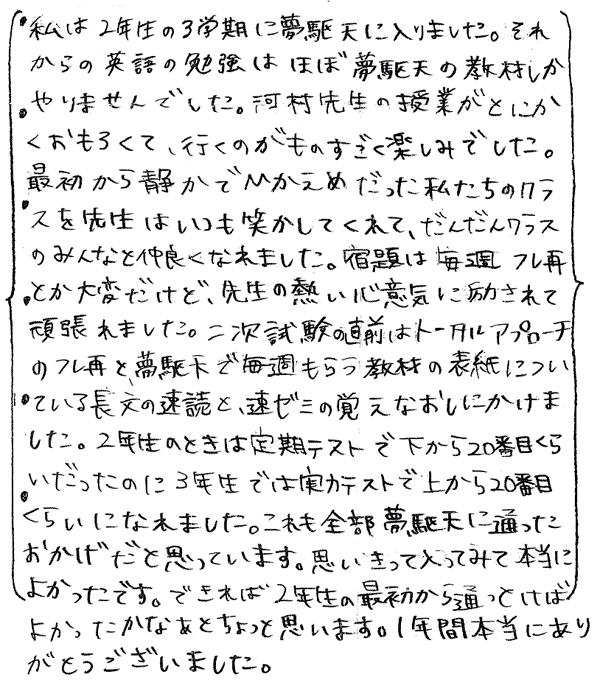 私は2年生の3学期に夢駆天に入りました。それ
からの英語の勉強はほぼ夢駆天の教材しか
やりませんでした。河村先生の授業がとにか
くおもろくて、行くのがものすごく楽しみでした。
最初から静かでひかえめだった私たちのクラ
スを先生はいつも笑かしてくれて、だんだんクラス
のみんなと仲良くなれました。宿題は毎週フレ再
とか大変だけど、先生の熱い心意気に励まされて
頑張れました。二次試験の直前はトータルアプローチ
のフレ再と、夢駆天で毎週もらう教材の表紙につい
ている長文の速読と、速ゼミの覚えなおしにかけま
した。2年生のときは定期テストで下から20番目くら
いだったのに3年生では実力テストで上から20番目
くらいになれました。これも全部夢駆天に通った
おかげだと思っています。思いきって入ってみて本当に
よかったです。できれば2年生の最初から通っとけば
よかったかなぁとちょっと思います。1年間本当にあり
がとうございました。